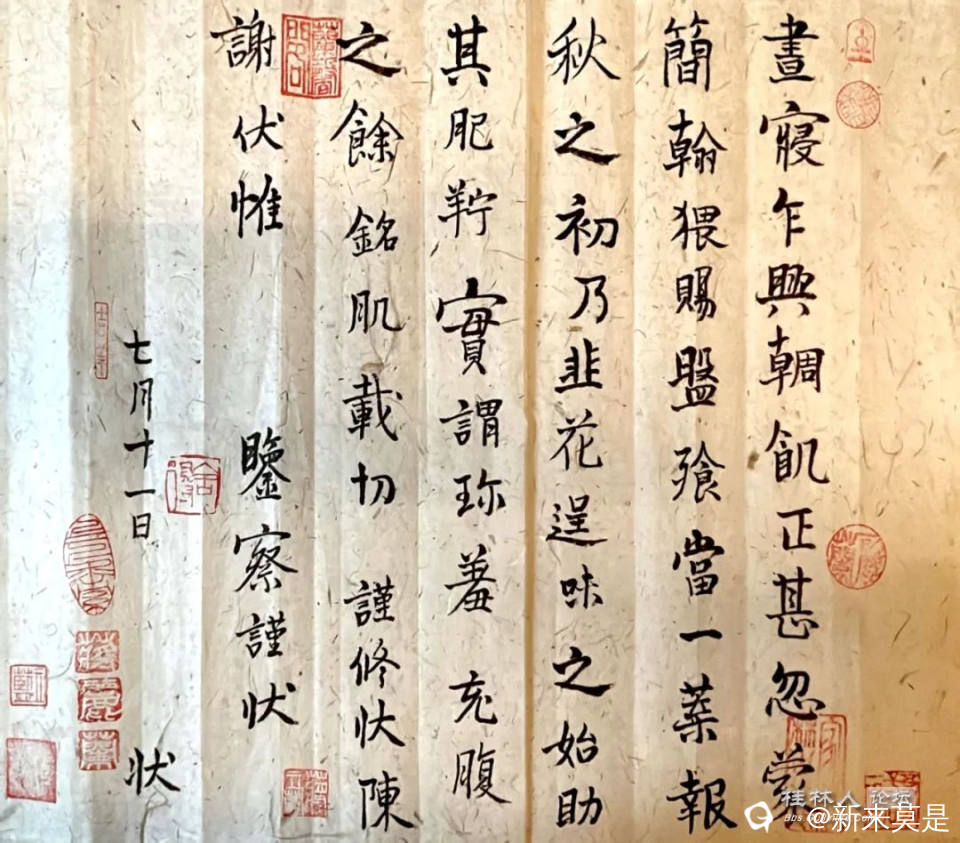 晝寢乍興輖飢正甚忽蒙
簡翰猥賜盤飧當一葉報
秋之初乃韭花逞味之始助
其肥羜實謂珍羞充腹
之餘銘肌載切謹修狀陳
謝伏惟鑒察謹狀
七月十一日狀
桂林人论坛
@新来莫是